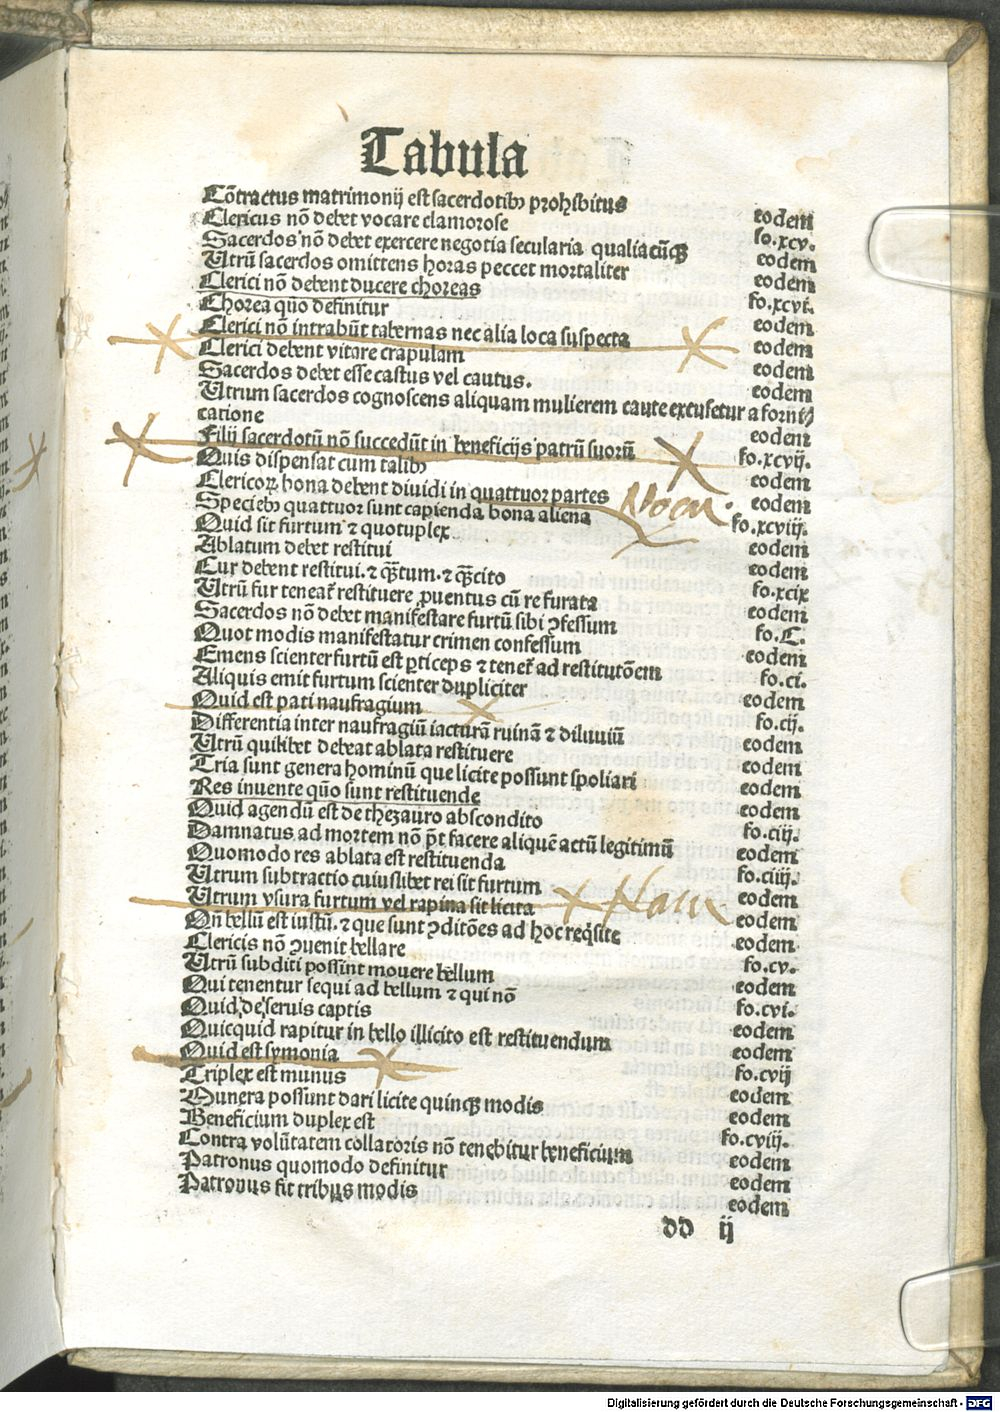 Tabula
Cõtractus matrimonij est sacerdotibꝰ prohibitus eodem
Clericus nõ debet vocare clamorose fo.xcv.
Sacerdos nõ debet exercere negotia secularia qualiacũqꝫ eodem
Utrũ sacerdos omittens horas peccet mortaliter eodem
Clerici nõ debent ducere choreas fo.xcvi.
Chorea quo definitur eodem
Clerici nõ intrabũt tabernas nec alia loca suspecta eodem
Clerici debent vitare crapulam eodem
Sacerdos debet esse castus vel cautus. eodem
Utrum sacerdos cognoscens aliquam mulierem caute excusetur a forni
catione eodem
Filij sacerdotũ nõ succedũt in beneficijs patrũ suorũ fo.xcvij.
Quis dispensat cum talibꝰ eodem
Clericoꝝ bona debent dividi in quattuor partes eodem
Speciebꝰ quattuor sunt capienda bona aliena fo.xcviij.
Quid sit furtum ⁊ quotuplex eodem
Ablatum debet restitui eodem
Cur debent restitui. ⁊ qũtum. ⁊ qũcito fo.xcix
Utrũ fur teneat̃ restituere ꝓuentus cũ re furata eodem
Sacerdos nõ debet manifestare furtũ sibi ꝯfessum fo.C.
Quot modis manifestatur crimen confessum eodem
Emens scienter furtũ est ꝑticeps ⁊ tenet̃ ad restitutõem fo.ci.
Aliquis emit furtum scienter dupliciter eodem
Quid est pati naufragium fo.cij.
Differentia inter naufragiũ iacturã ruinã ⁊ diluuiũ eodem
Utrũ quilibet debeat ablata restituere eodem
Tria sunt genera hominũ que licite possunt spoliari eodem
Res inuente quo sunt restituende eodem
Quid agendũ est de thezauro abscondito fo.ciij.
Damnatus ad mortem nõ põt facere aliquẽ actũ legitimũ eodem
Quomodo res ablata est restituenda fo.ciiij.
Utrum subtractio cuiuslibet rei sit furtum eodem
Utrum vsura furtum vel rapina sit licita eodem
Qñ bellũ est iustũ. ⁊ que sunt ꝯditões ad hoc reqͥsite eodem
Clericis nõ ꝯuenit bellare fo.cv.
Utrũ subditi possint mouere bellum eodem
Qui tenentur sequi ad bellum ⁊ qui nõ fo.cvi.
Quid de seruis captis eodem
Quicquid rapitur in bello illicito est restituendum eodem
Quid est symonia fo.cvij
Triplex est munus eodem
Munera possunt dari licite quinqꝫ modis eodem
Beneficium duplex est fo.cviij.
Contra volũtatem collatoris nõ tenebitur beneficium eodem
Patronus quomodo definitur eodem
Patronus fit tribus modis eodem
dd ij
Digitalisierung gefördert durch die Deutsche Forschungsgemeinschaft - DFG